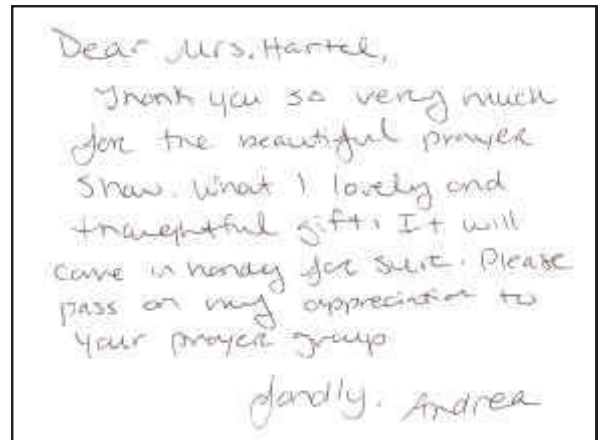 Dear Mrs. Hartel,
Thank you so very much
for the beautiful prayer
Shaw. What a lovely and
thoughtful gift. It will
come in handy for sure. Please
pass on my appreciation to
your prayer group
fondly. Andrea